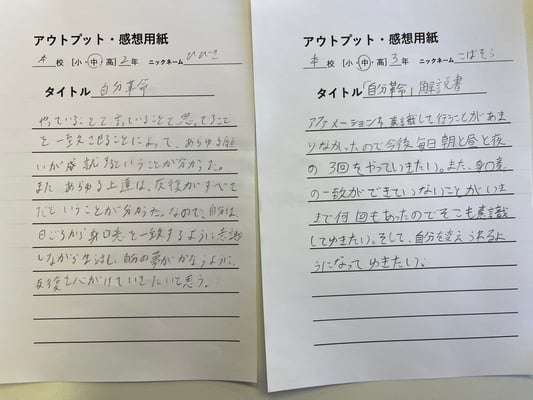 アウトプット・感想用紙
本 校 [小・中・高] 2 年 ニックネーム ひびき
タイトル 自分革命
やっていることと言っていることと思ってること
を一致させることによって、あらゆる願
いが成就するということが分かった。
また あらゆる上達は、反復がすべて
だということが分かった。なので、自分は
日ごろから身口意を一致するように意識
しながら生活し、自分の夢がかなうように、
反復を心がけていきたいと思う。
アウトプット・感想用紙
本 校 [小・中・高] 3 年 ニックネーム こばそら
タイトル 「自分革命」解説書
アファメーションを意識して行うことがあま
りなかったので今後毎日朝と昼と夜
の3回をやっていきたい。また、身口意
の一致ができていないことがいま
まで何回もあったのでそこも意識
してゆきたい。そして、自分を変えられるよ
うになってゆきたい。